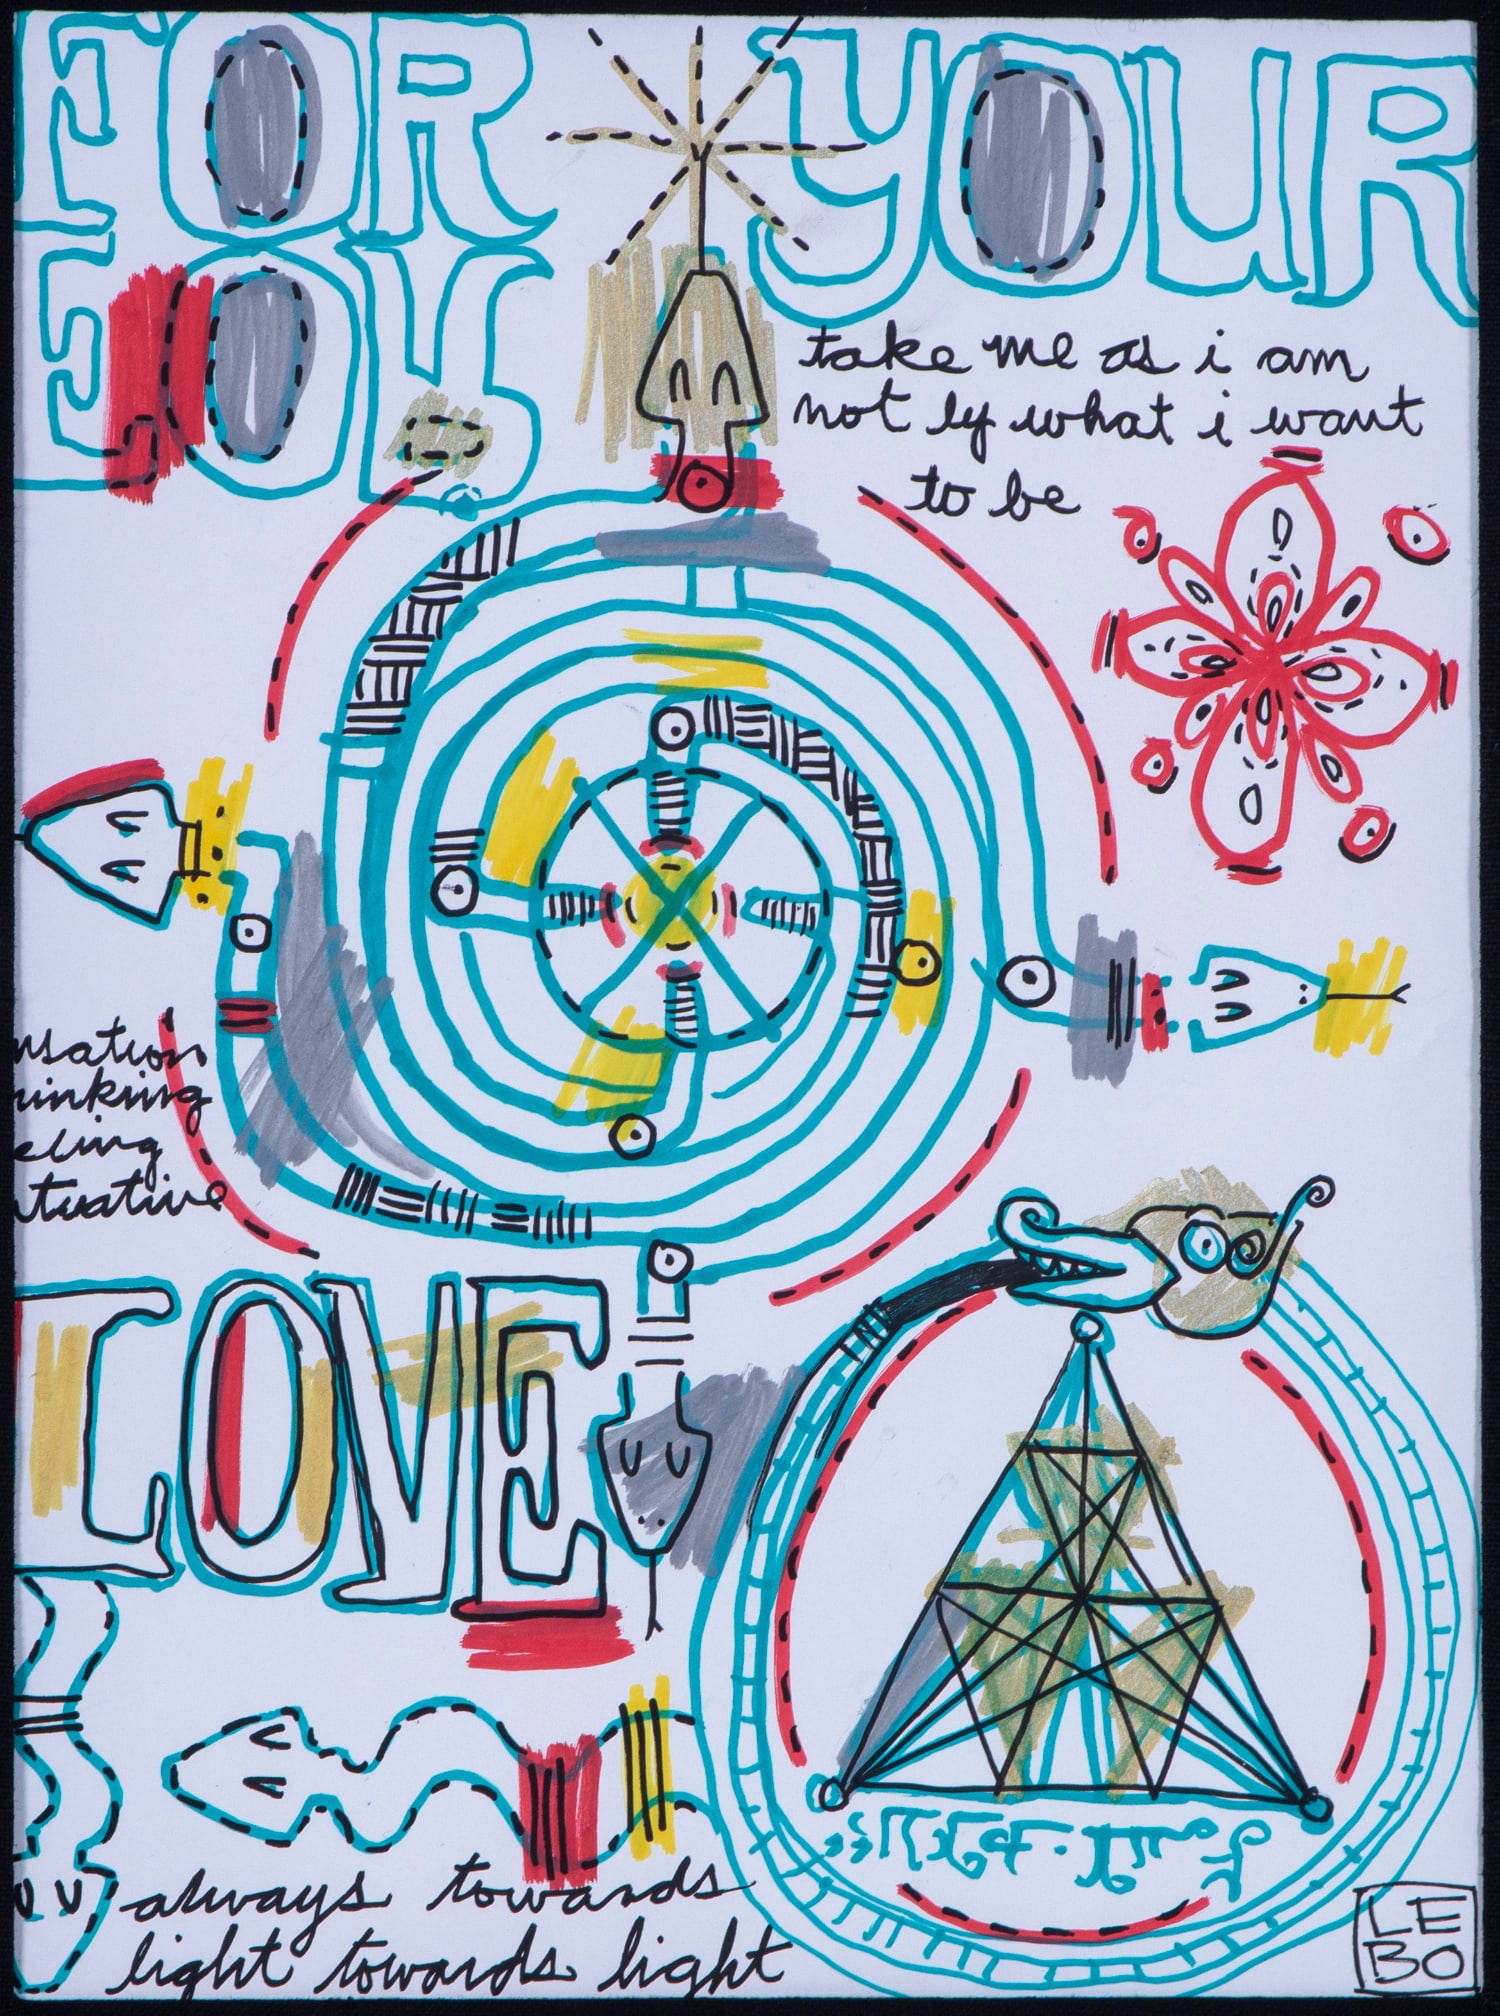 FOR YOUR
JOY
take me as i am
not by what i want
to be
nsation
hinking
eling
ntuative
LOVE
always towards
light towards light
LE
BO